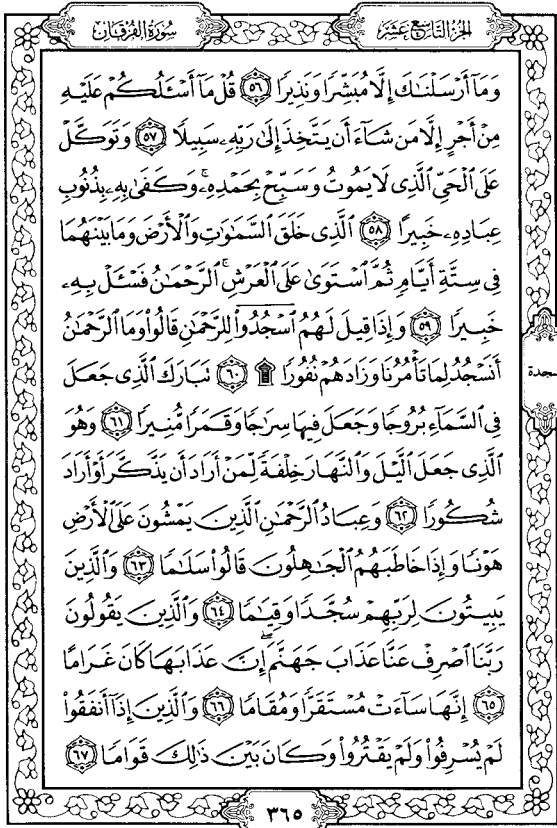 سُورَةُ الفُرْقَان
الجُزْءُ التَّاسِعَ عَشَرَ
وَمَآ أَرْسَلْنَٰكَ إِلَّا مُبَشِّرًا وَنَذِيرًا ٥٦ قُلْ مَآ أَسْـَٔلُكُمْ عَلَيْهِ
مِنْ أَجْرٍ إِلَّا مَن شَآءَ أَن يَتَّخِذَ إِلَىٰ رَبِّهِۦ سَبِيلًا ٥٧ وَتَوَكَّلْ
عَلَى ٱلْحَىِّ ٱلَّذِى لَا يَمُوتُ وَسَبِّحْ بِحَمْدِهِۦ ۚ وَكَفَىٰ بِهِۦ بِذُنُوبِ
عِبَادِهِۦ خَبِيرًا ٥٨ ٱلَّذِى خَلَقَ ٱلسَّمَٰوَٰتِ وَٱلْأَرْضَ وَمَا بَيْنَهُمَا
فِى سِتَّةِ أَيَّامٍ ثُمَّ ٱسْتَوَىٰ عَلَى ٱلْعَرْشِ ۚ ٱلرَّحْمَٰنُ فَسْـَٔلْ بِهِۦ
خَبِيرًا ٥٩ وَإِذَا قِيلَ لَهُمُ ٱسْجُدُوا۟ لِلرَّحْمَٰنِ قَالُوا۟ وَمَا ٱلرَّحْمَٰنُ
أَنَسْجُدُ لِمَا تَأْمُرُنَا وَزَادَهُمْ نُفُورًا ۩ ٦٠ تَبَارَكَ ٱلَّذِى جَعَلَ
فِى ٱلسَّمَآءِ بُرُوجًا وَجَعَلَ فِيهَا سِرَٰجًا وَقَمَرًا مُّنِيرًا ٦١ وَهُوَ
ٱلَّذِى جَعَلَ ٱلَّيْلَ وَٱلنَّهَارَ خِلْفَةً لِّمَنْ أَرَادَ أَن يَذَّكَّرَ أَوْ أَرَادَ
شُكُورًا ٦٢ وَعِبَادُ ٱلرَّحْمَٰنِ ٱلَّذِينَ يَمْشُونَ عَلَى ٱلْأَرْضِ
هَوْنًا وَإِذَا خَاطَبَهُمُ ٱلْجَٰهِلُونَ قَالُوا۟ سَلَٰمًا ٦٣ وَٱلَّذِينَ
يَبِيتُونَ لِرَبِّهِمْ سُجَّدًا وَقِيَٰمًا ٦٤ وَٱلَّذِينَ يَقُولُونَ
رَبَّنَا ٱصْرِفْ عَنَّا عَذَابَ جَهَنَّمَ ۖ إِنَّ عَذَابَهَا كَانَ غَرَامًا
٦٥ إِنَّهَا سَآءَتْ مُسْتَقَرًّا وَمُقَامًا ٦٦ وَٱلَّذِينَ إِذَآ أَنفَقُوا۟
لَمْ يُسْرِفُوا۟ وَلَمْ يَقْتُرُوا۟ وَكَانَ بَيْنَ ذَٰلِكَ قَوَامًا ٦٧
سجدة
٣٦٥